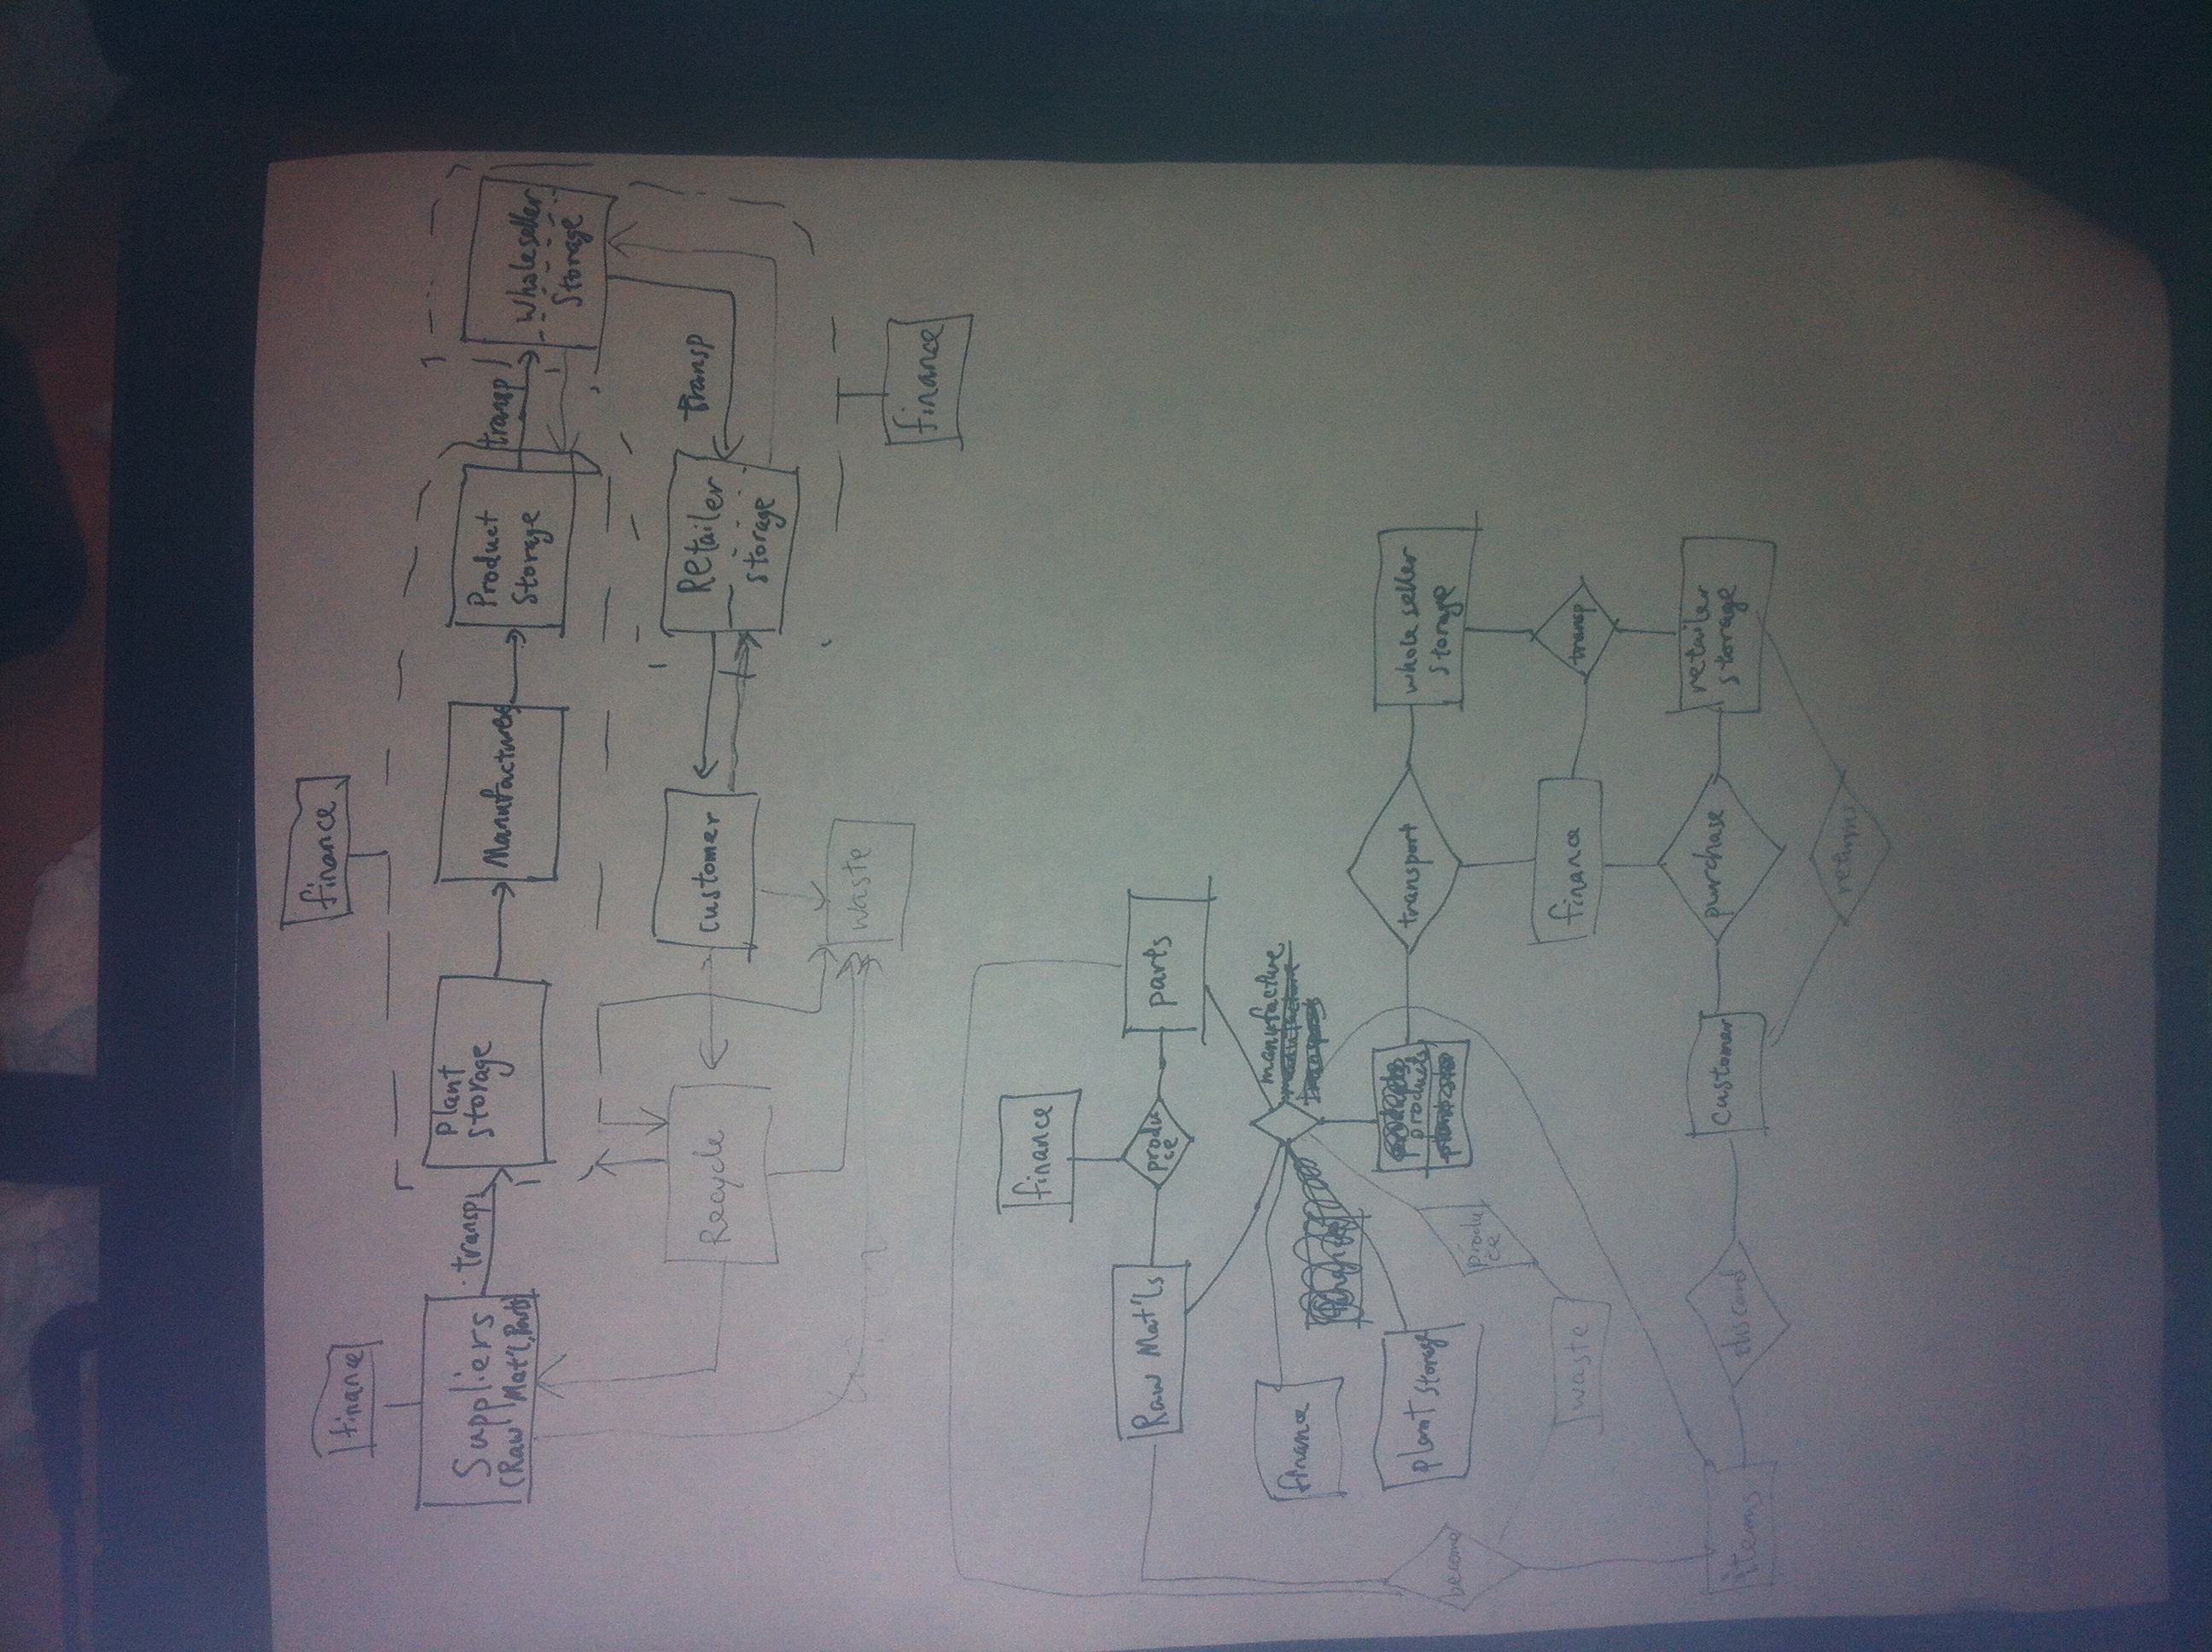 finance
finance
Suppliers
(Raw Mat'l, Parts)
transp
Plant
Storage
Manufacturers
Product
Storage
transp
Wholeseller
Storage
Recycle
Customer
Retailer
Storage
Transp
waste
finance
finance
Raw Mat'ls
produ
ce
parts
finance
manufacture
plant storage
products
transport
whole seller
storage
become
produ
ce
waste
finance
transp
items
discard
Customer
purchase
retailer
storage
returns